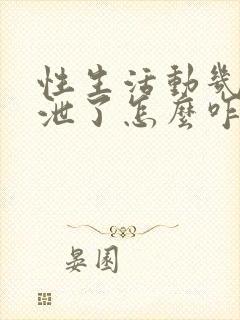 性生活動幾
泄了怎麼咋
晏園